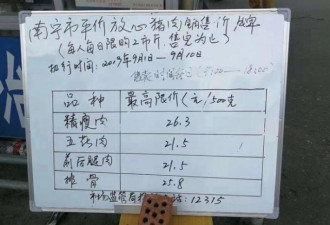 南宁市平价放心猪肉销售价牌
(每人每日限购2市斤,售完为止)
执行时间:2019年9月1日—9月10日
品种 最高限价(元/500克
精瘦肉 26.3
五花肉 21.5
前后腿肉 21.5
排骨 25.8
市场监管局 12315